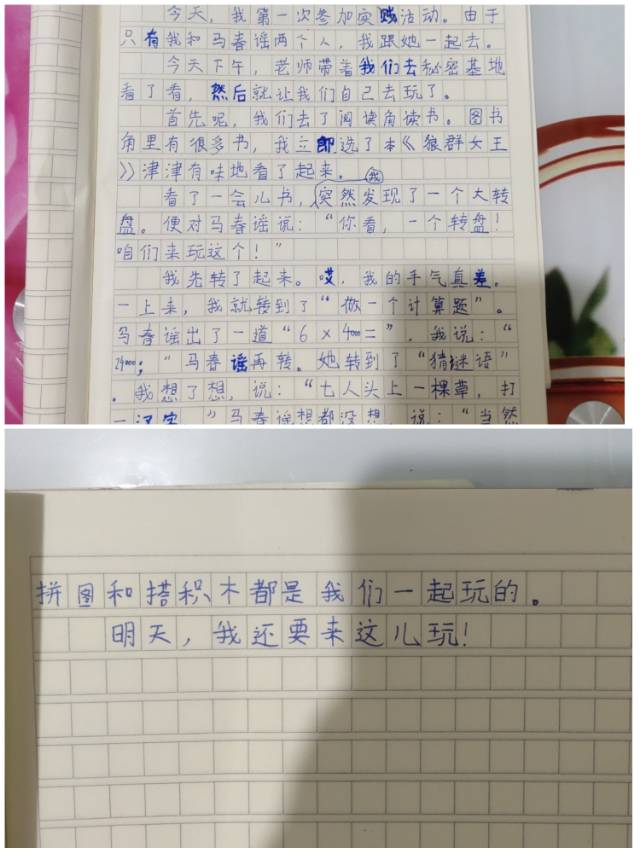 今天，我第一次参加实践活动。由于
只有我和马春谣两个人，我跟她一起去。
今天下午，老师带着我们去秘密基地
看了看，然后就让我们自己去玩了。
首先呢，我们去了阅读角读书。图书
角里有很多书，我立即选了本《狼群女王
》津津有味地看了起来。
我
看了一会儿书，突然发现了一个大转
盘。便对马春谣说：“你看，一个转盘！
咱们来玩这个！”
我先转了起来。哎，我的手气真差。
一上来，我就转到了“做一个计算题”。
马春谣出了一道“6×4000=”，我说：“
24000；”马春谣再转。她转到了“猜谜语”
。我想了想，说：“七人头上一棵草，打
一汉字。”马春谣想都没想，说：“当然
拼图和搭积木都是我们一起玩的。
明天，我还要来这儿玩！